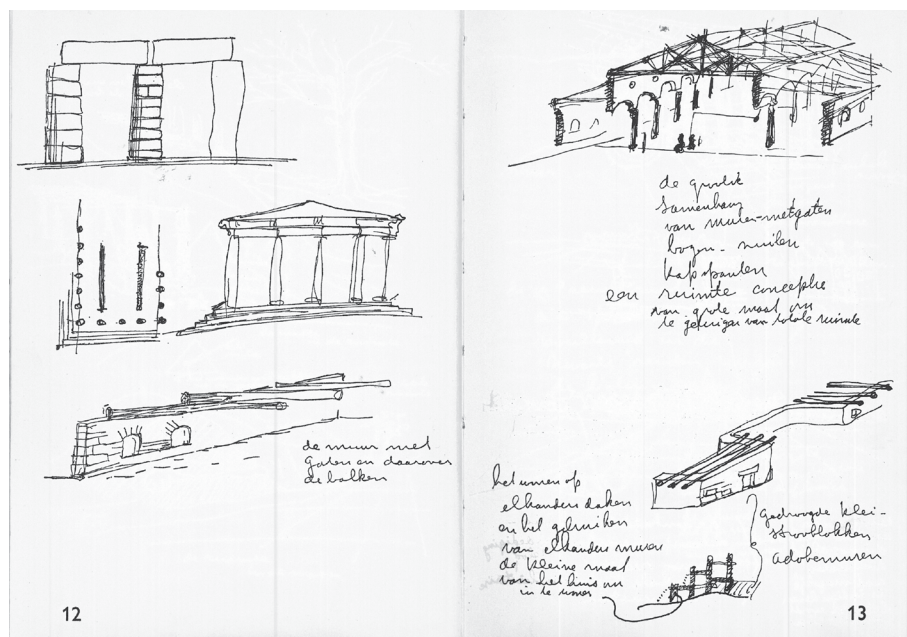 de muur met
gaten en daarover
de balken
12
de grootse
samenhang
van muren-met gaten
bogen - zuilen
kapspanten
een ruimte conceptie
van grote maat om
te getuigen van totale ruimte
het wonen op
elkanders daken
en het gebruiken
van elkanders muren
de kleine maat
van het huis om
in te wonen
gedroogde klei-
strooblokken
adobemuren
13